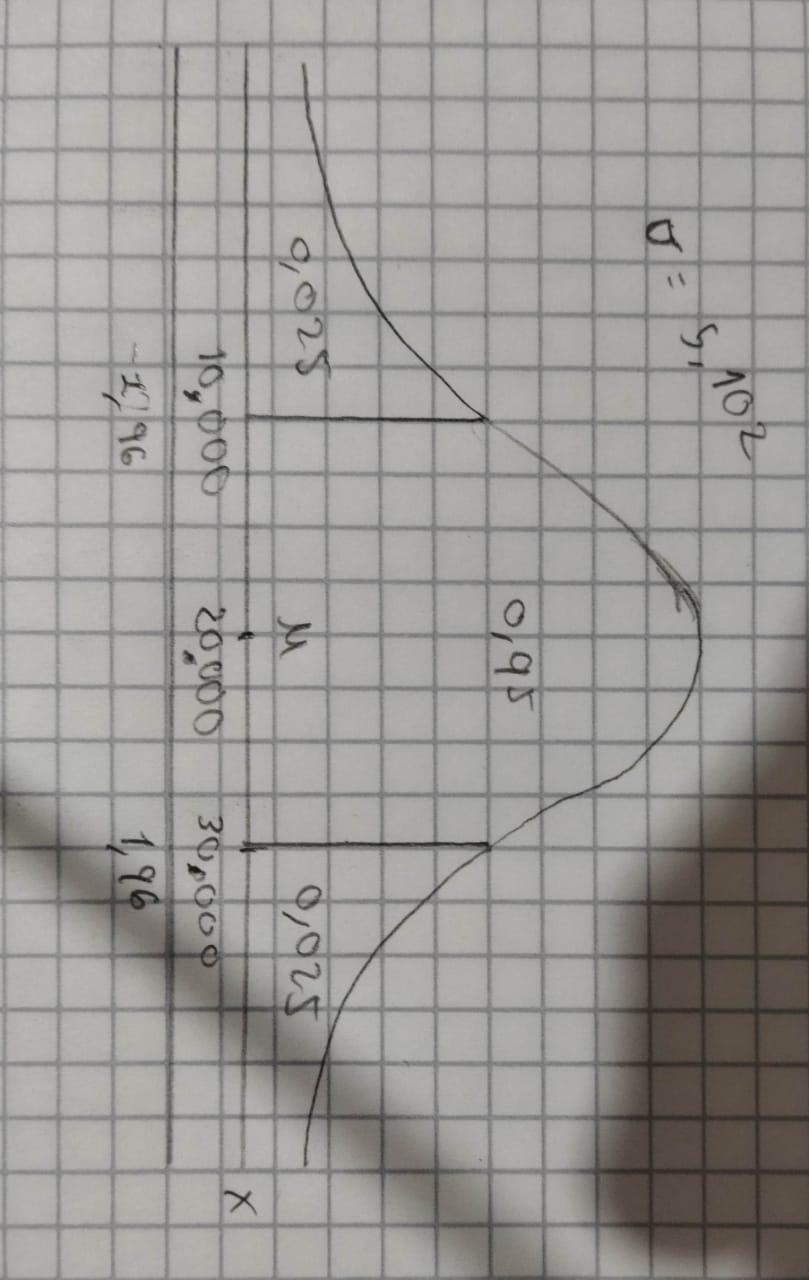 σ = 5,102
0,95
0,025
μ
0,025
10,000
20,000
30,000
x
-1,96
1,96